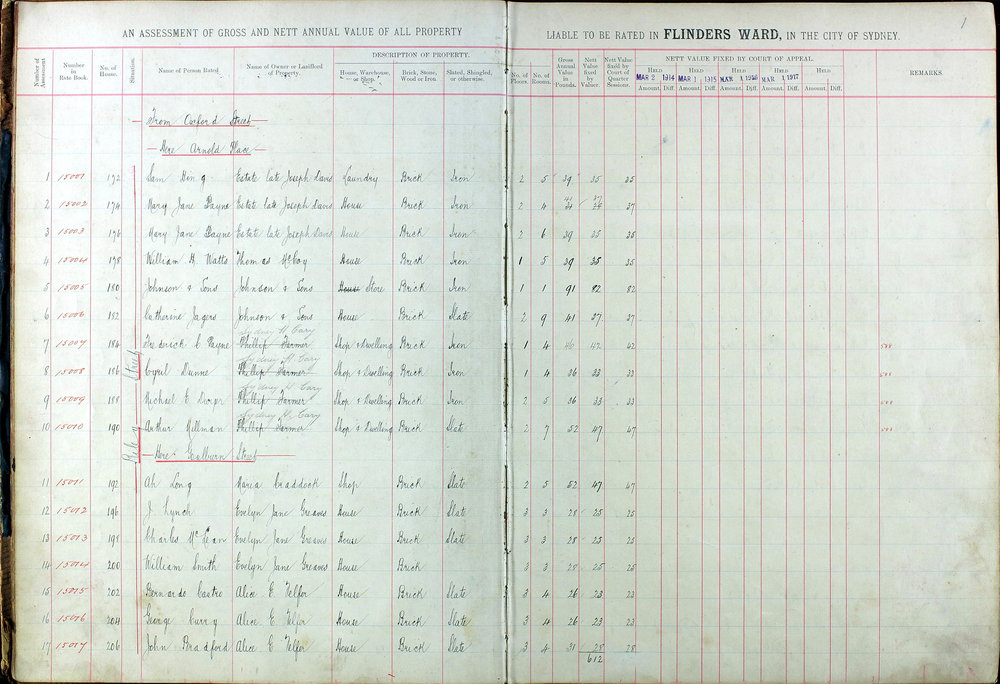 1
AN ASSESSMENT OF GROSS AND NETT ANNUAL VALUE OF ALL PROPERTY LIABLE TO BE RATED IN FLINDERS WARD, IN THE CITY OF SYDNEY.
Number of Assessment Number in Rate Book. No. of House. Situation. Name of Person Rated. Name of Owner or Landlord of Property. DESCRIPTION OF PROPERTY. House, Warehouse, or Shop. Brick, Stone, Wood or Iron. Slated, Shingled, or otherwise. No. of Floors. No. of Rooms. Gross Annual Value in Pounds. Nett Value fixed by Valuer. Nett Value fixed by Court of Quarter Sessions. NETT VALUE FIXED BY COURT OF APPEAL. REMARKS.
HELD MAR 2 1914 HELD MAR 1 1915 HELD MAR 1 1916 HELD MAR 1 1917 HELD
Amount. Diff. Amount. Diff. Amount. Diff. Amount. Diff. Amount. Diff.
From Oxford Street
Here Arnold Place
Street
1 15001 172 Sam Hing Estate late Joseph Davis Laundry Brick Iron 2 5 39 35 35
2 15002 174 Mary Jane Payne Estate late Joseph Davis House Brick Iron 2 4 41 37 37
3 15003 176 Mary Jane Payne Estate late Joseph Davis House Brick Iron 2 6 39 35 35
4 15004 178 William H Watts Thomas McCoy House Brick Iron 1 5 39 35 35
5 15005 180 Johnson & Sons Johnson & Sons House Store Brick Iron 1 1 91 82 82
6 15006 182 Catherine Jagers Johnson & Sons House Brick Slate 2 9 41 37 37
Sydney H. Cary
7 15007 184 Frederick C. Payne Phillip Farmer Shop & Dwelling Brick Iron 1 4 42 42
Sydney H. Cary
8 15008 186 Cyril Dunne Phillip Farmer Shop & Dwelling Brick Iron 1 4 36 33 33
Sydney H. Cary
9 15009 188 Michael E Phillip Farmer Shop & Dwelling Brick Iron 2 5 36 33 33
Sydney H. Cary
10 15010 190 Arthur Hillman Phillip Farmer Shop & Dwelling Brick Slate 2 7 52 47 47
Here Goulburn Street
11 15011 192 Ah Long Maria Craddock Shop Brick Slate 2 5 52 47 47
12 15012 196 J. Lynch Evelyn Jane Greaves House Brick Slate 3 3 28 25 25
13 15013 198 Charles McLean Evelyn Jane Greaves House Brick Slate 3 3 28 25 25
14 15014 200 William Smith Evelyn Jane Greaves House Brick 3 3 28 25 25
15 15015 202 Bernardo Castro Alice E Telfer House Brick Slate 3 4 26 23 23
16 15016 204 George Curry Alice E Telfer House Brick Slate 3 4 26 23 23
17 15017 206 John Bradford Alice E Telfer House Brick Slate 3 4 31 28 28
612